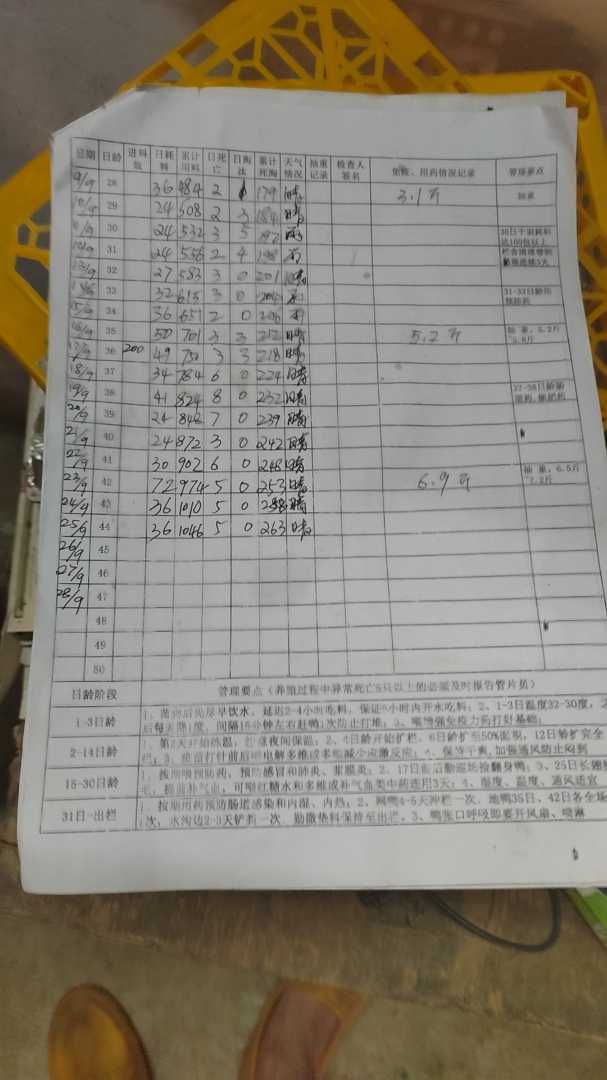 日期 日龄 进料数 日耗料 累计用料 日死亡 日淘汰 累计死淘 天气情况 抽重记录 检查人签名 免疫、用药情况记录 管理要点
9/9 28 36 484 2 179 晴 3.1斤
29 24 508 2 3 184 晴
30 24 532 3 5 雨 30日干湿耗料达100包以上
31 24 556 2 4 198 雨
13/9 32 27 583 3 0 201 晴
33 32 615 3 0 204 31-33日龄用
15/9 34 36 651 2 0 206
16/9 35 50 701 3 3 212 晴 5.2斤 抽重,5.2斤-5.8斤
17/9 36 200 49 750 3 3 218 晴
18/9 37 34 784 6 0 224 晴
19/9 38 41 824 8 0 232 晴
20/9 39 24 848 7 0 239 晴
21/9 40 24 872 3 0 242 晴
22/9 41 30 902 6 0 248 晴
23/9 42 72 974 5 0 253 晴 6.9斤 抽重,6.5斤-7.2斤
24/9 43 36 1010 5 0 258 晴
25/9 44 36 1046 5 0 263 晴
26/9 45
27/9 46
28/9 47
48
49
50
日龄阶段 管理要点(养殖过程中异常死亡5只以上的必须及时报告管片员)
1-3日龄 1、苗到后先尽早饮水,延迟2-4小时吃料,保证6小时内开水吃料;2、1-3日温度32-30度,2
后每天降1度,间隔15分钟左右赶鸭1次防止打堆;3、
2-14日龄 1、第2天开始炼温,注意夜间保温;2、4日龄开始扩栏,6日龄扩至50%面积,12日龄扩完全
栏;3、疫苗打针前后喂电解多维或多维减少应激反应;4、保持干爽,加强通风防止闷到
15-30日龄 1、按期喂预防药,预防感冒和肺炎、浆膜炎;2、17日龄后勤巡场捡翻身鸭;3、25日长翅
毛,提前补气血,可喂红糖水和多维或补气血类中药连用3天;4、湿度、温度、通风适宜
31日-出栏 1、按期用药预防肠道感染和内湿、内热;2、网鸭4-5天冲栏一次,地鸭35日、42日各全场
1次;水沟边2-3天铲粪一次,勤撒垫料保持至出栏。3、鸭张口呼吸即要开风扇、喷淋